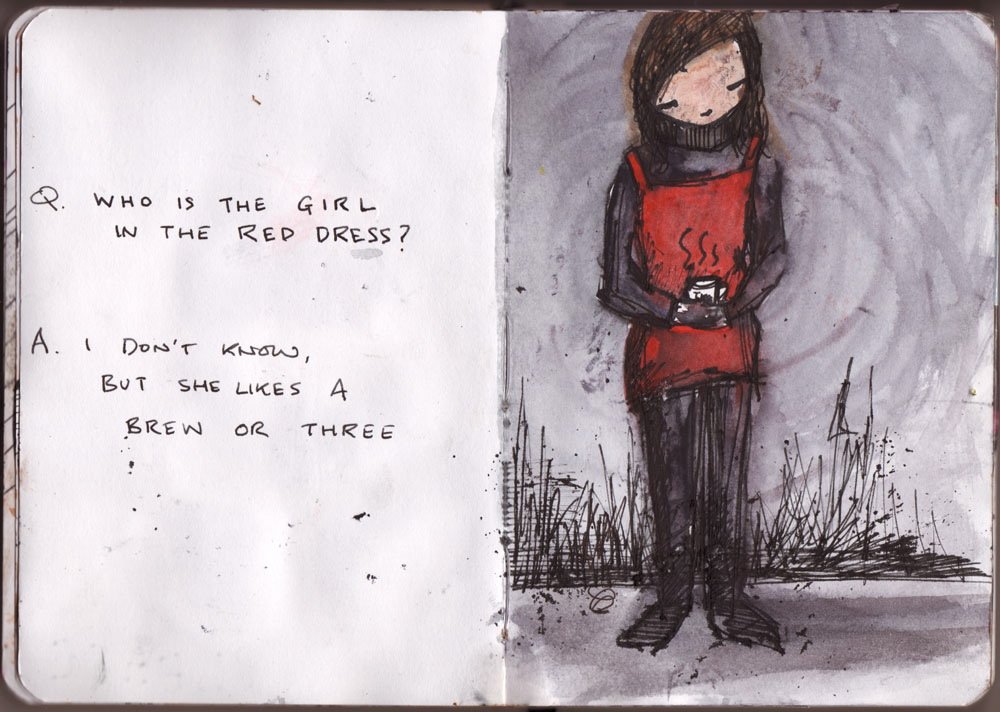 Q. WHO IS THE GIRL
IN THE RED DRESS?
A. I DON'T KNOW,
BUT SHE LIKES A
BREW OR THREE